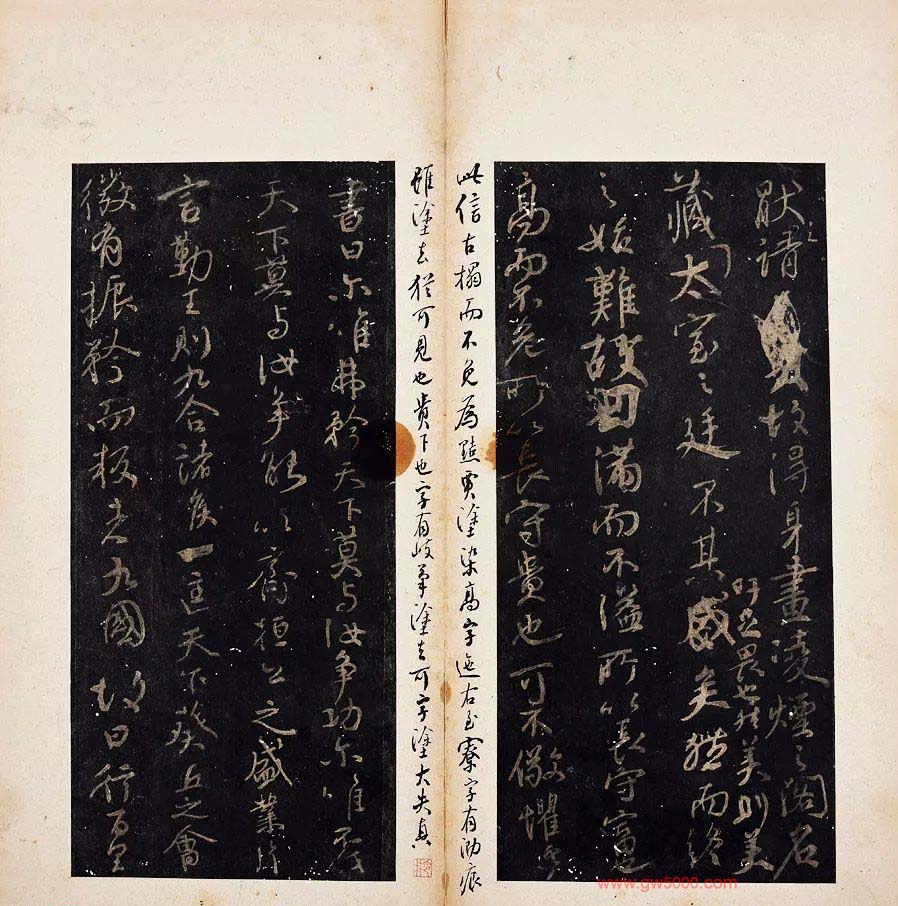 猒請故得身畫凌煙之閣名
藏太室之廷不其盛矣然而終
吁足畏也然美則美
之始難故曰滿而不溢所以長守富
高而不危所以長守貴也可不儆懼乎
此信古搨而不免為黠賈塗染高字迤右至寮字有泐痕
雖塗去猶可見也貴下也字有歧筆塗去可字塗大失真
書曰尔唯弗矜天下莫与汝爭功尔唯不伐
天下莫与汝爭能以齊桓公之盛業片
言勤王則九合諸侯一匡天下葵丘之會
微有振矜而叛者九國故曰行百里
www.gw5000.com